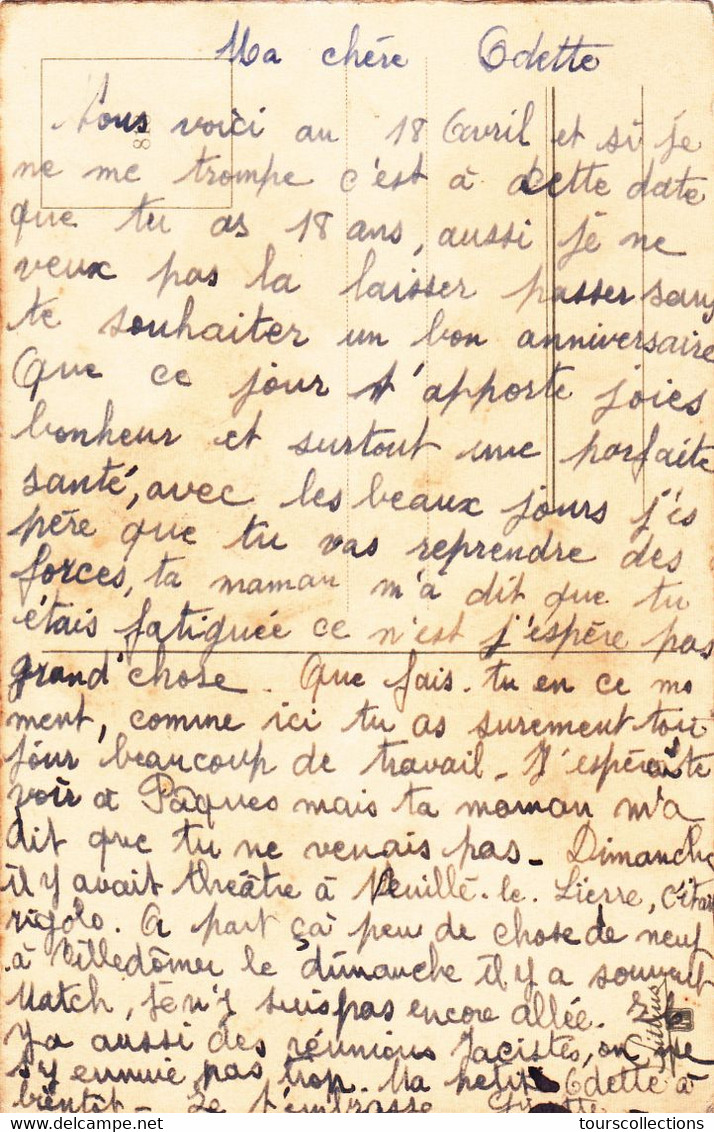 Ma chère Odette
Nous voici au 18 Avril et si je
ne me trompe c'est à cette date
que tu as 18 ans, aussi je ne
veux pas la laisser passer sans
te souhaiter un bon anniversaire
Que ce jour t'apporte joies
bonheur et surtout une parfaite
santé, avec les beaux jours j'es
père que tu vas reprendre des
forces, ta maman m'a dit que tu
étais fatiguée ce n'est j'espère pas
grand'chose. Que fais-tu en ce mo
ment, comme ici tu as surement tou
jour beaucoup de travail. J'espérais te
voir à Pâques mais ta maman m'a
dit que tu ne venais pas. Dimanche
il y avait théâtre à Neuillé-le-Lierre, c'était
rigolo. A part ça peu de chose de neuf
à Villedômer le dimanche il y a souvent
Match, je n'y suis pas encore allée. Il
y a aussi des réunions Jacistes, on ne
s'y ennuie pas trop. Ma petite Odette à
bientôt. Je t'embrasse
tourscollections